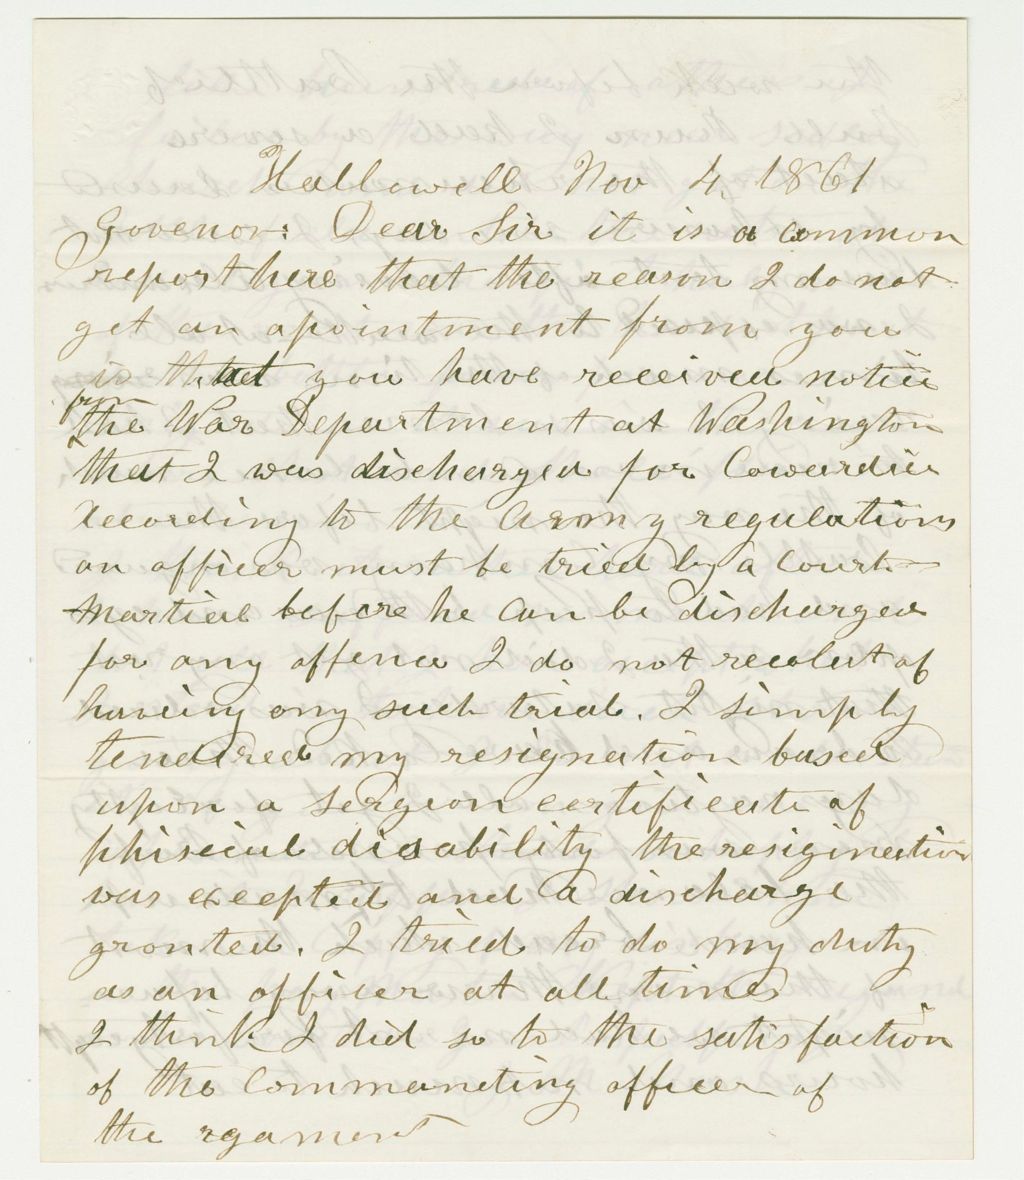 Hallowell Nov 4, 1861
Govenor: Dear Sir it is a common
report here that the reason I do not
get an apointment from you
is that you have received notice
from
the War Department at Washington
that I was discharged for Cowardice
According to the Army regulations
an officer must be tried by a Court-
Martial before he can be discharged
for any offence I do not recolect of
having any such trial. I simply
tendered my resignation based
upon a sergeon certificate of
phisical disability the resignation
was excepted and a discharge
gronted. I tried to do my duty
as an officer at all times
I think I did so to the satisfaction
of the Commanding officer of
the rgament